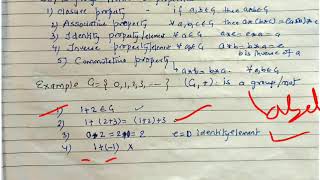 1) closure property - if a,b∈G then a*b∈G
2) Associative property ∀ a,b,c∈G then a*(b*c)=(a*b)*c
3) Identity property/element ∀ a∈G a*e=e*a=a
4) Inverse property ∀ a∈G a*b=b*a=e
b is inverse of a
5) Commutative property
a*b=b*a. ∀ a,b∈G
Example G={0,1,2,3,---} (G,+) is a group/not
1) 1+2∈G ✓
2) 1+(2+3)=(1+2)+3
3) 0+2=2+0=2 e=0 identity element
4) 1+(-1) X